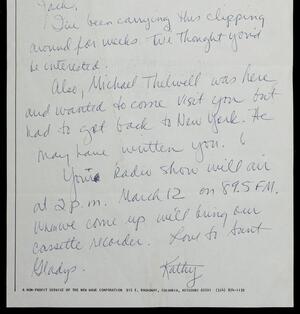 Jack,
I've been carrying this clipping
around for weeks. We thought you'd
be interested.
Also, Michael Thelwell was here
and wanted to come visit you but
had to get back to New York. He
may have written you.
Your Radio show will air
at 2 p.m. March 12 on 89.5 FM.
When we come up will bring our
cassette recorder. Love to Aunt
Gladys.
Kathy
A NON-PROFIT SERVICE OF THE NEW WAVE CORPORATION 915 E. BROADWAY, COLUMBIA, MISSOURI 65201 (314) 874-1139